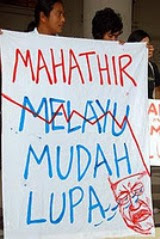 MAHATHIR
MELAYU
MUDAH
LUPA